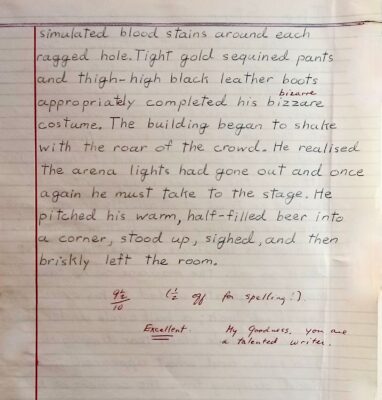 simulated blood stains around each
ragged hole. Tight gold sequined pants
and thigh-high black leather boots
bizarre
appropriately completed his bizzare
costume. The building began to shake
with the roar of the crowd. He realised
the arena lights had gone out and once
again he must take to the stage. He
pitched his warm, half-filled beer into
a corner, stood up, sighed, and then
briskly left the room.
9½/10 (½ off for spelling!).
Excellent. My goodness, you are
a talented writer.